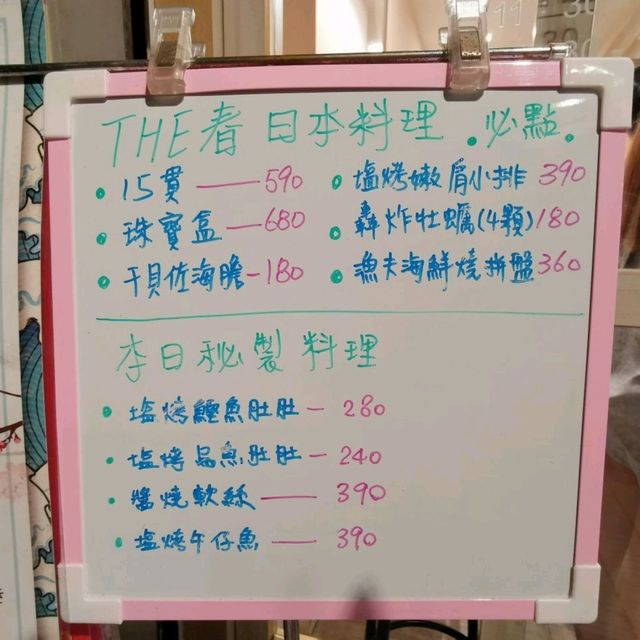 THE春 日本料理 .必點.
• 15貫 —— 590
• 珠寶盒 —— 680
• 干貝佐海膽 - 180
• 塩烤嫩肩小排 390
• 轟炸牡蠣(4顆) 180
• 漁夫海鮮燒拼盤 360
本日秘製料理
• 塩烤鰹魚肚肚 — 280
• 塩烤 魚肚肚 — 240
• 醬燒軟絲 —— 390
• 塩烤午仔魚 —— 390
11
30
20